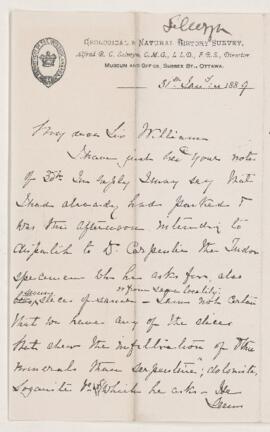 Selwyn
GEOLOGICAL & NATURAL HISTORY SURVEY,
Alfred R. C. Selwyn, C.M.G., LL.D., F.R.S., Director
MUSEUM AND OFFICE, SUSSEX ST., OTTAWA.
31st Jany 1889
My dear Sir William
I have just recd your note
of 30th. In reply I may say that
I had already had packed &
was this afternoon intending to
dispatch to Dr Carpenter the Tudor
specimen Who he asks for, also
or from same locality.
slices of same - I am not certain
that we have any of the slices
that shew the infiltration of other
minerals than serpentine, dolomite,
Loganite &c which he asks - He
seems